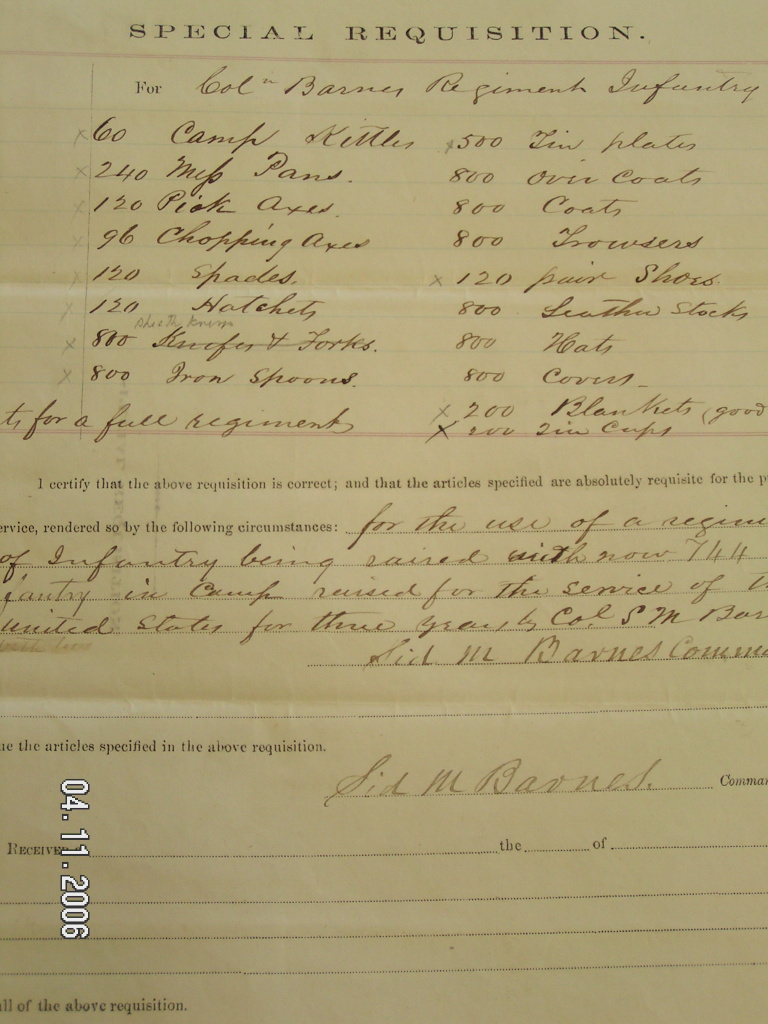 SPECIAL REQUISITION.
For Coln Barnes Regiment Infantry
x 60 Camp Kittles x 500 Tin plates
x 240 Mess Pans. 800 Over Coats
x 120 Pick Axes. 800 Coats
x 96 Chopping Axes 800 Trowsers
x 120 Spades. x 120 pair Shoes.
x 120 Hatchets 800 Leather Stocks
sheath knives
x 800 Knifes & Forks. 800 Hats
x 800 Iron Spoons. 800 Covers
ts for a full regiment x 200 Blankets (good
x 200 Tin Cups
I certify that the above requisition is correct; and that the articles specified are absolutely requisite for the p
ervice, rendered so by the following circumstances: for the use of a regim
of Infantry being raised with now 744
fantry in Camp raised for the service of th
united States for three years by Col. S M Bar
Sid M Barnes Comma
ue the articles specified in the above requisition.
Sid M Barnes. Comman
RECEIVED the of
ll of the above requisition.
04.11.2006